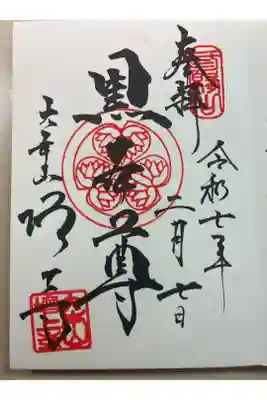 奉拝
令和七年
二月七日
黒本尊
大本山 増上寺